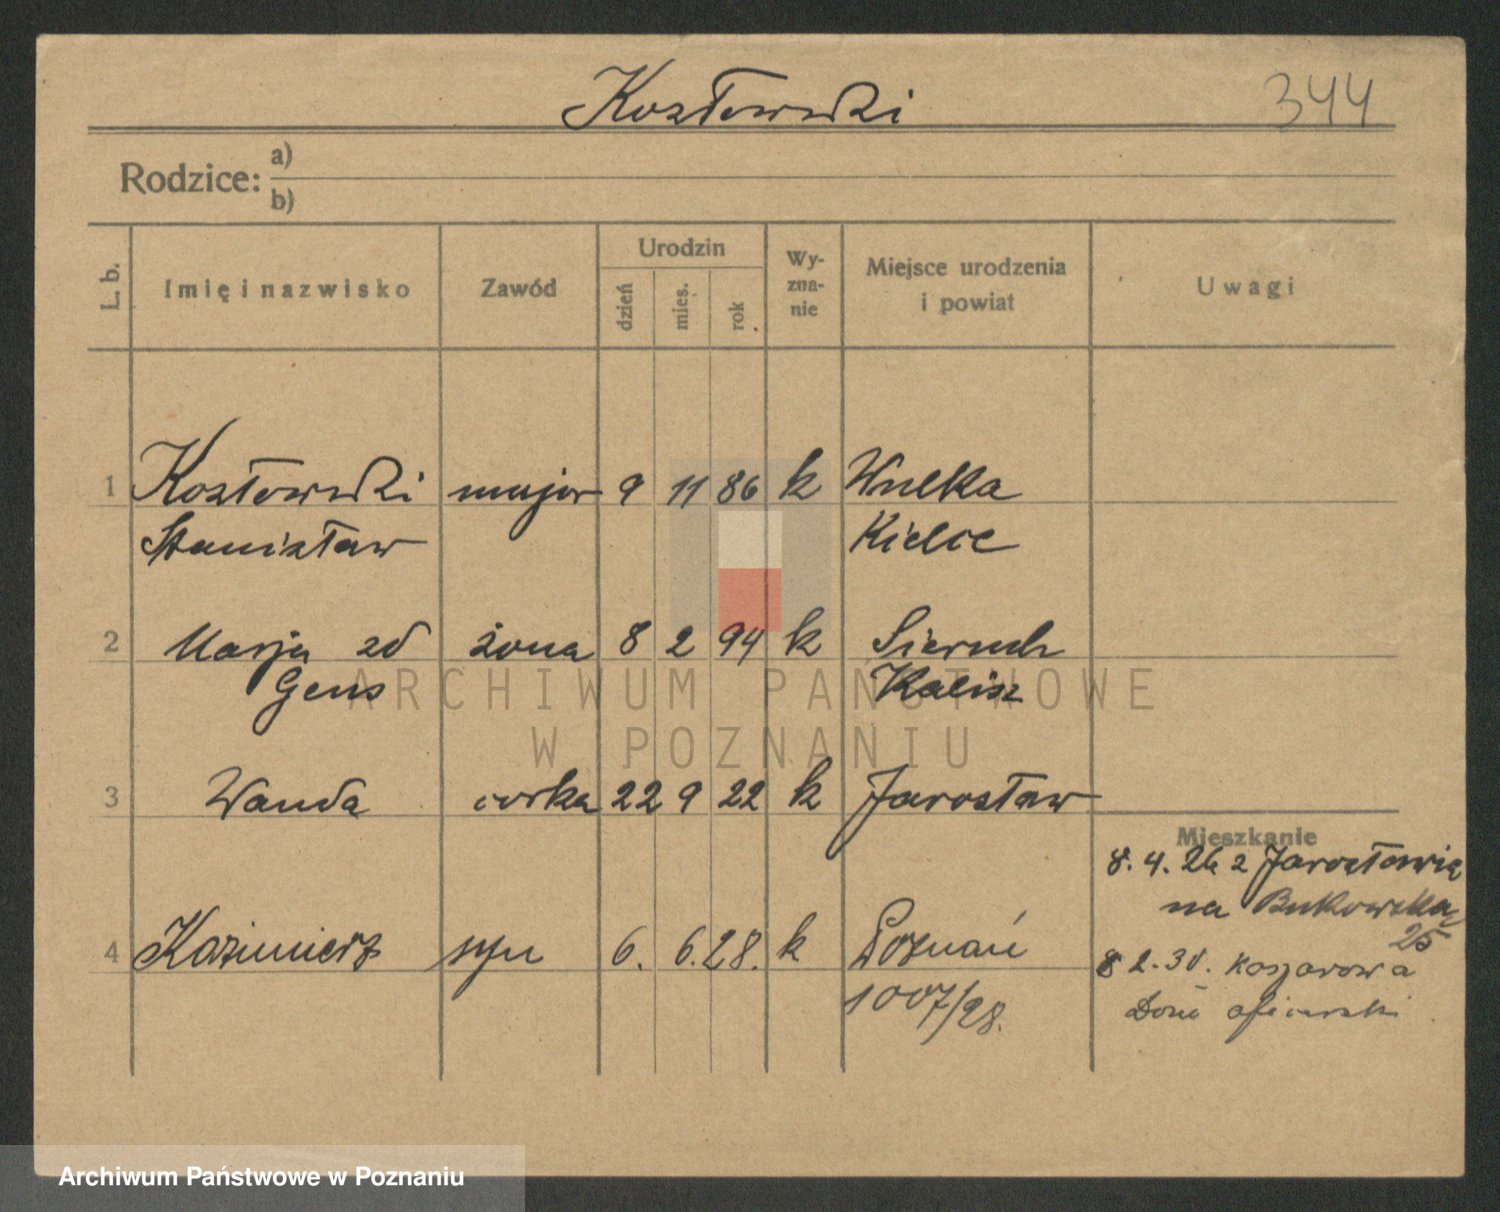 Kozłowski
344
Rodzice: a)
b)
L. b.
Imię i nazwisko
Zawód
Urodzin
dzień
mies.
rok
Wy-
zna-
nie
Miejsce urodzenia
i powiat
Uwagi
1 Kozłowski major 9 11 86 k Wulka
Stanisław Kielce
2 Marja zd żona 8 2 94 k
Gens Kalisz
ARCHIWUM PAŃSTWOWE
W POZNANIU
3 Wanda córka 22 9 22 k Jarosław
Mieszkanie
8. 4. 26 z Jarosławia
na Bukowska
25
4 Kazimierz syn 6. 6. 28. k Poznań
1007/28.
8 2. 30. Koszarowa
Dom oficerski
Archiwum Państwowe w Poznaniu